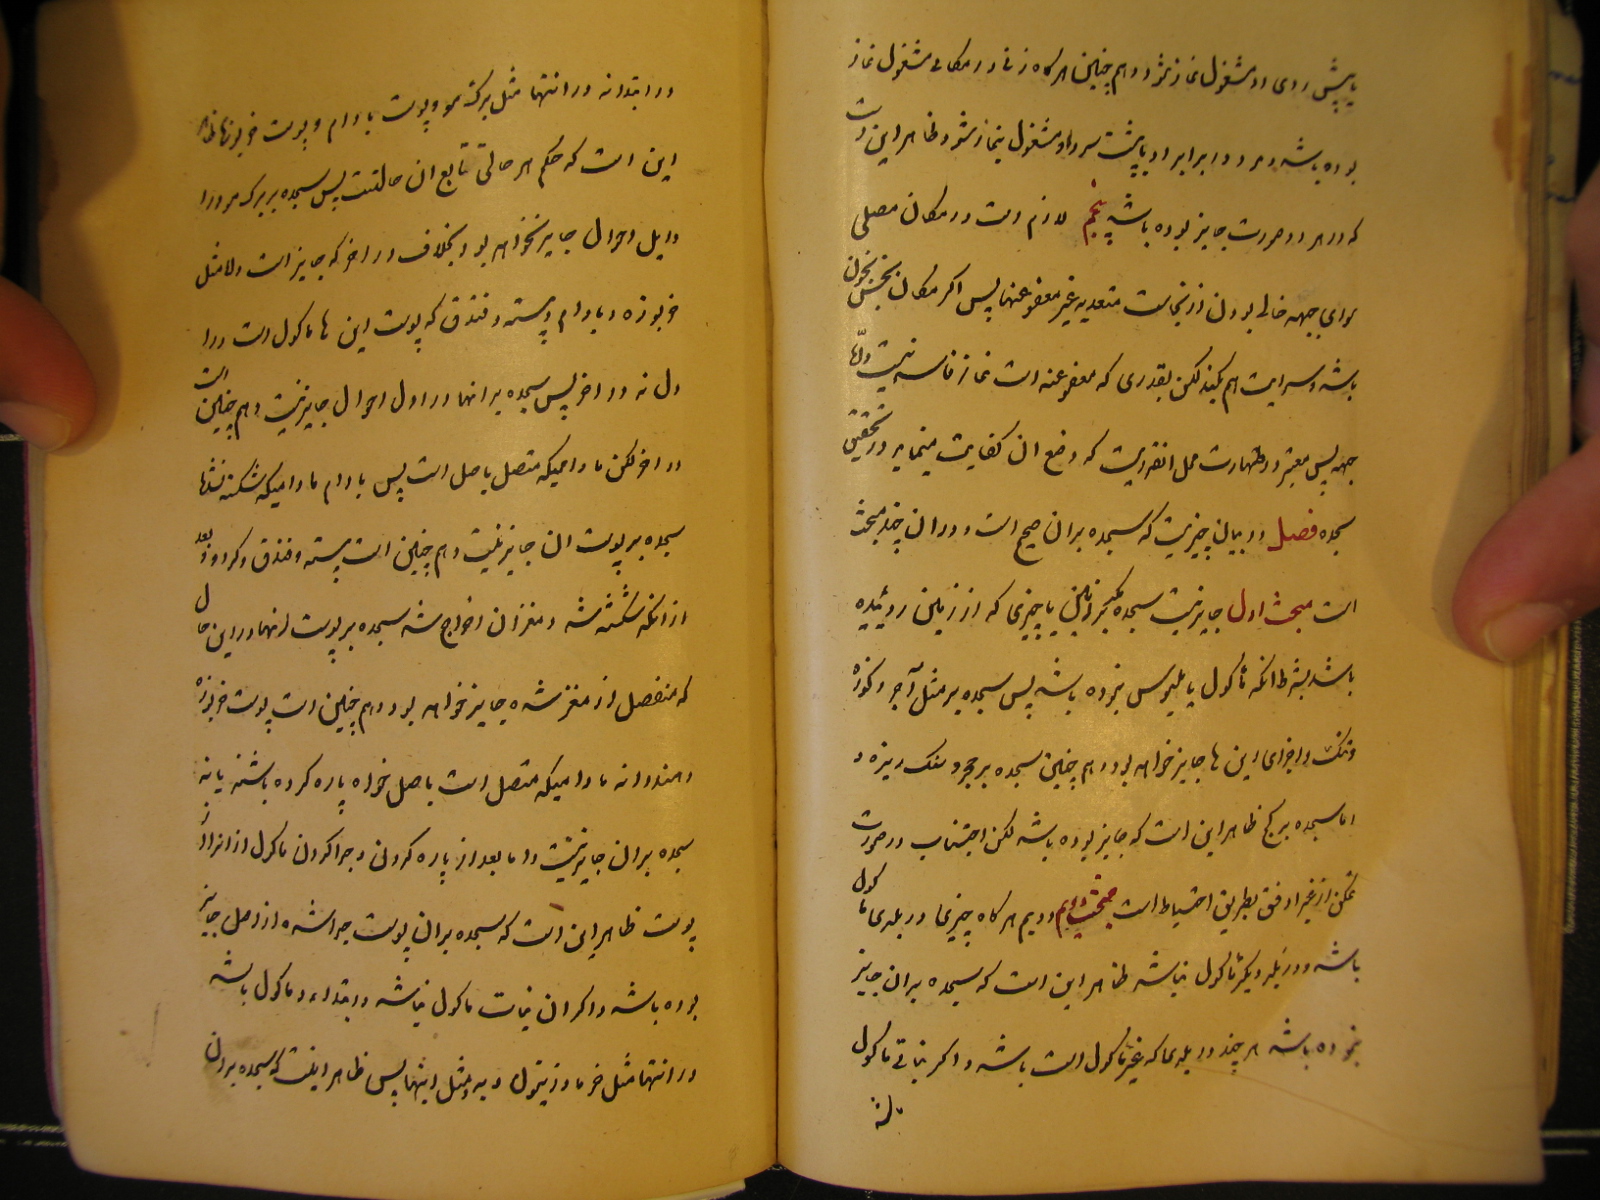 یا پیش روی او مشغول نماز نشود و هم چنین هرگاه زنی در مکانی مشغول نماز
بوده باشد مرد در برابر او یا پشت سر او مشغول بنماز شود ظاهر این است
که در هر دو صورت جایز بوده باشد پنجم لازم است در مکان مصلی
سوای جبهه خالی بودن از نجاست متعدیه غیر معفو عنها پس اگر مکان نجس بخون
باشد و سرایت هم کند لکن بقدری که معفو عنه است نماز فاسد نیست و امّا
جبهه پس معتبر در طهارت محل انقدریست که وضع ان کفایت مینماید در تحقیق
سجده فصل در بیان چیزیست که سجده بران صحیح است و دران چند مبحث
است مبحث اول جایز نیست سجده مگر بر زمین یا چیزی که از زمین روئیده
باشد بشرط انکه ماکول یا ملبوس نبوده باشد پس سجده بر مثل آجر و کوزه
و اجزای این ها جایز خواهد بود و هم چنین سجده بر حجر و سنک ریزه و
اما سجده بر کج ظاهر این است که جایز بوده باشد لکن اجتناب در صورت
تمکن از غیر اوفق بطریق احتیاط است مبحث دویم هرگاه چیزی در بلدی ماکول
باشد و در بلد دیگر ماکول نباشد ظاهر این است که سجده بران جایز
نبوده باشد هر چند در بلدی که غیر ماکول است باشد و اگر نباتی ماکول
در ابتدا نه در انتها مثل برک مو و پوست بادام و پوست خربوزها ظاهر
این است که حکم هر حالتی تابع ان حالتست پس سجده بر برک مو در ا
وایل احوال جایز نخواهد بود بخلاف در اخر که جایز است و لا مثل
خربوزه و بادام و پسته و فندق که پوست این ها ماکول است در ا
ول نه در اخر پس سجده بر انها در اول احوال جایز نیست و هم چنین است
در اخر لکن مادامیکه متصل باصل است پس بادام مادامیکه شکسته نشد
سجده بر پوست ان جایز نیست و هم چنین است پسته و فندق و کردو و بعد
از انکه شکسته شد و مغز ان اخراج شد سجده بر پوست انها در این حال
که منفصل از مغز شده جایز خواهد بود و هم چنین است پوست خربوزه
و هندوانه مادامیکه متصل است باصل خواه پاره کرده باشند یا نه
سجده بران جایز نیست و اما بعد از پاره کردن و جدا کردن ماکول از
پوست ظاهر این است که سجده بران پوست جدا شده از اصل جایز
بوده باشد و اگر ان نبات ماکول نباشد در ابتداء و ماکول باشد
در انتها مثل خرما و زیتون و به و مثل اینها پس ظاهر اینست که سجده بران